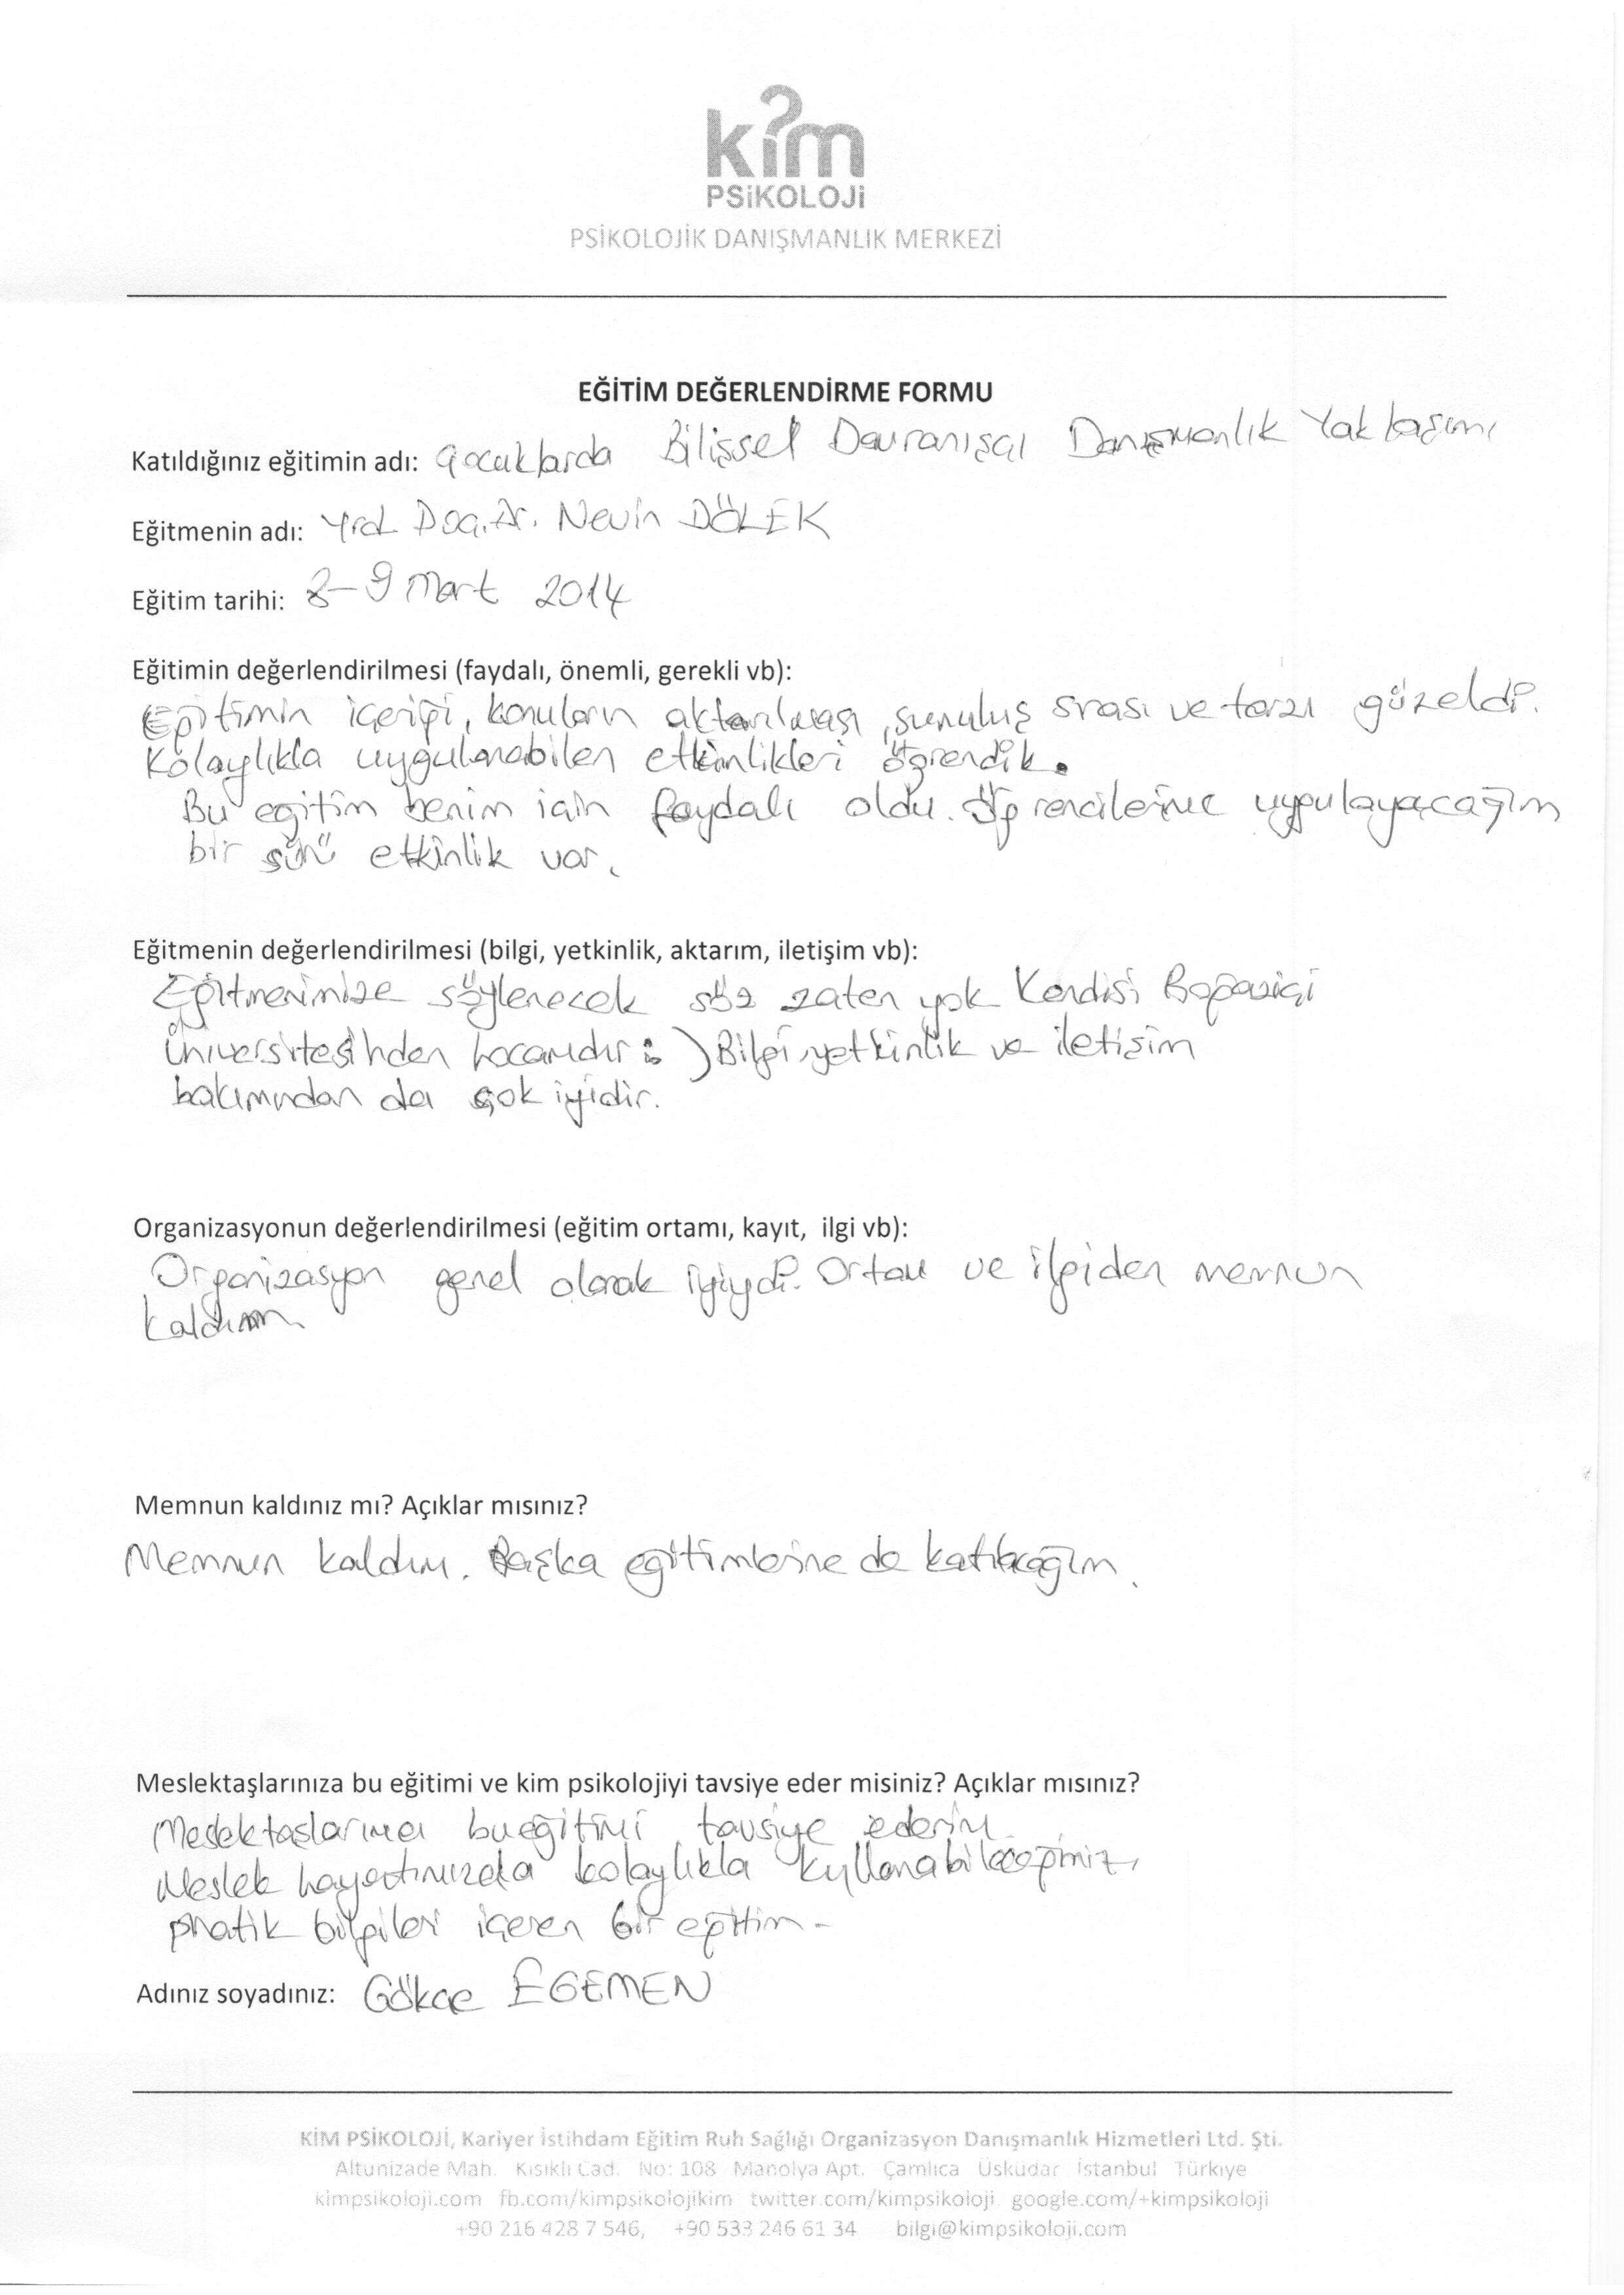 kim
PSiKOLOJi
PSİKOLOJİK DANIŞMANLIK MERKEZİ
EĞİTİM DEĞERLENDİRME FORMU
Katıldığınız eğitimin adı: Çocuklarda Bilişsel Davranışçı Danışmanlık Yaklaşımı
Eğitmenin adı: Yrd Doç. Dr. Nevin DÖLEK
Eğitim tarihi: 8-9 Mart 2014
Eğitimin değerlendirilmesi (faydalı, önemli, gerekli vb):
Eğitimin içeriği, konuların aktarılması, sunuluş sırası ve tarzı güzeldi.
Kolaylıkla uygulanabilen etkinlikleri öğrendik.
Bu eğitim benim için faydalı oldu. Öğrencilerime uygulayacağım
bir sürü etkinlik var.
Eğitmenin değerlendirilmesi (bilgi, yetkinlik, aktarım, iletişim vb):
Eğitmenimize söylenecek söz zaten yok Kendisi Boğaziçi
Üniversitesi'nden hocamdır :) Bilgi, yetkinlik ve iletişim
bakımından da çok iyidir.
Organizasyonun değerlendirilmesi (eğitim ortamı, kayıt, ilgi vb):
Organizasyon genel olarak iyiydi. Ortam ve ilgiden memnun
kaldım
Memnun kaldınız mı? Açıklar mısınız?
Memnun kaldım. Başka eğitimlerine de katılacağım.
Meslektaşlarınıza bu eğitimi ve kim psikolojiyi tavsiye eder misiniz? Açıklar mısınız?
Meslektaşlarıma bu eğitimi tavsiye ederim
Meslek hayatımızda kolaylıkla kullanabileceğimiz,
pratik bilgileri içeren bir eğitim-
Adınız soyadınız: Gökçe EGEMEN
KİM PSİKOLOJİ, Kariyer İstihdam Eğitim Ruh Sağlığı Organizasyon Danışmanlık Hizmetleri Ltd. Şti.
Altunizade Mah. Kısıklı Cad. No: 108 Manolya Apt. Çamlıca Üsküdar İstanbul Türkiye
kimpsikoloji.com fb.com/kimpsikolojikim twitter.com/kimpsikoloji google.com/+kimpsikoloji
+90 216 428 7 546, +90 533 246 61 34 bilgi@kimpsikoloji.com